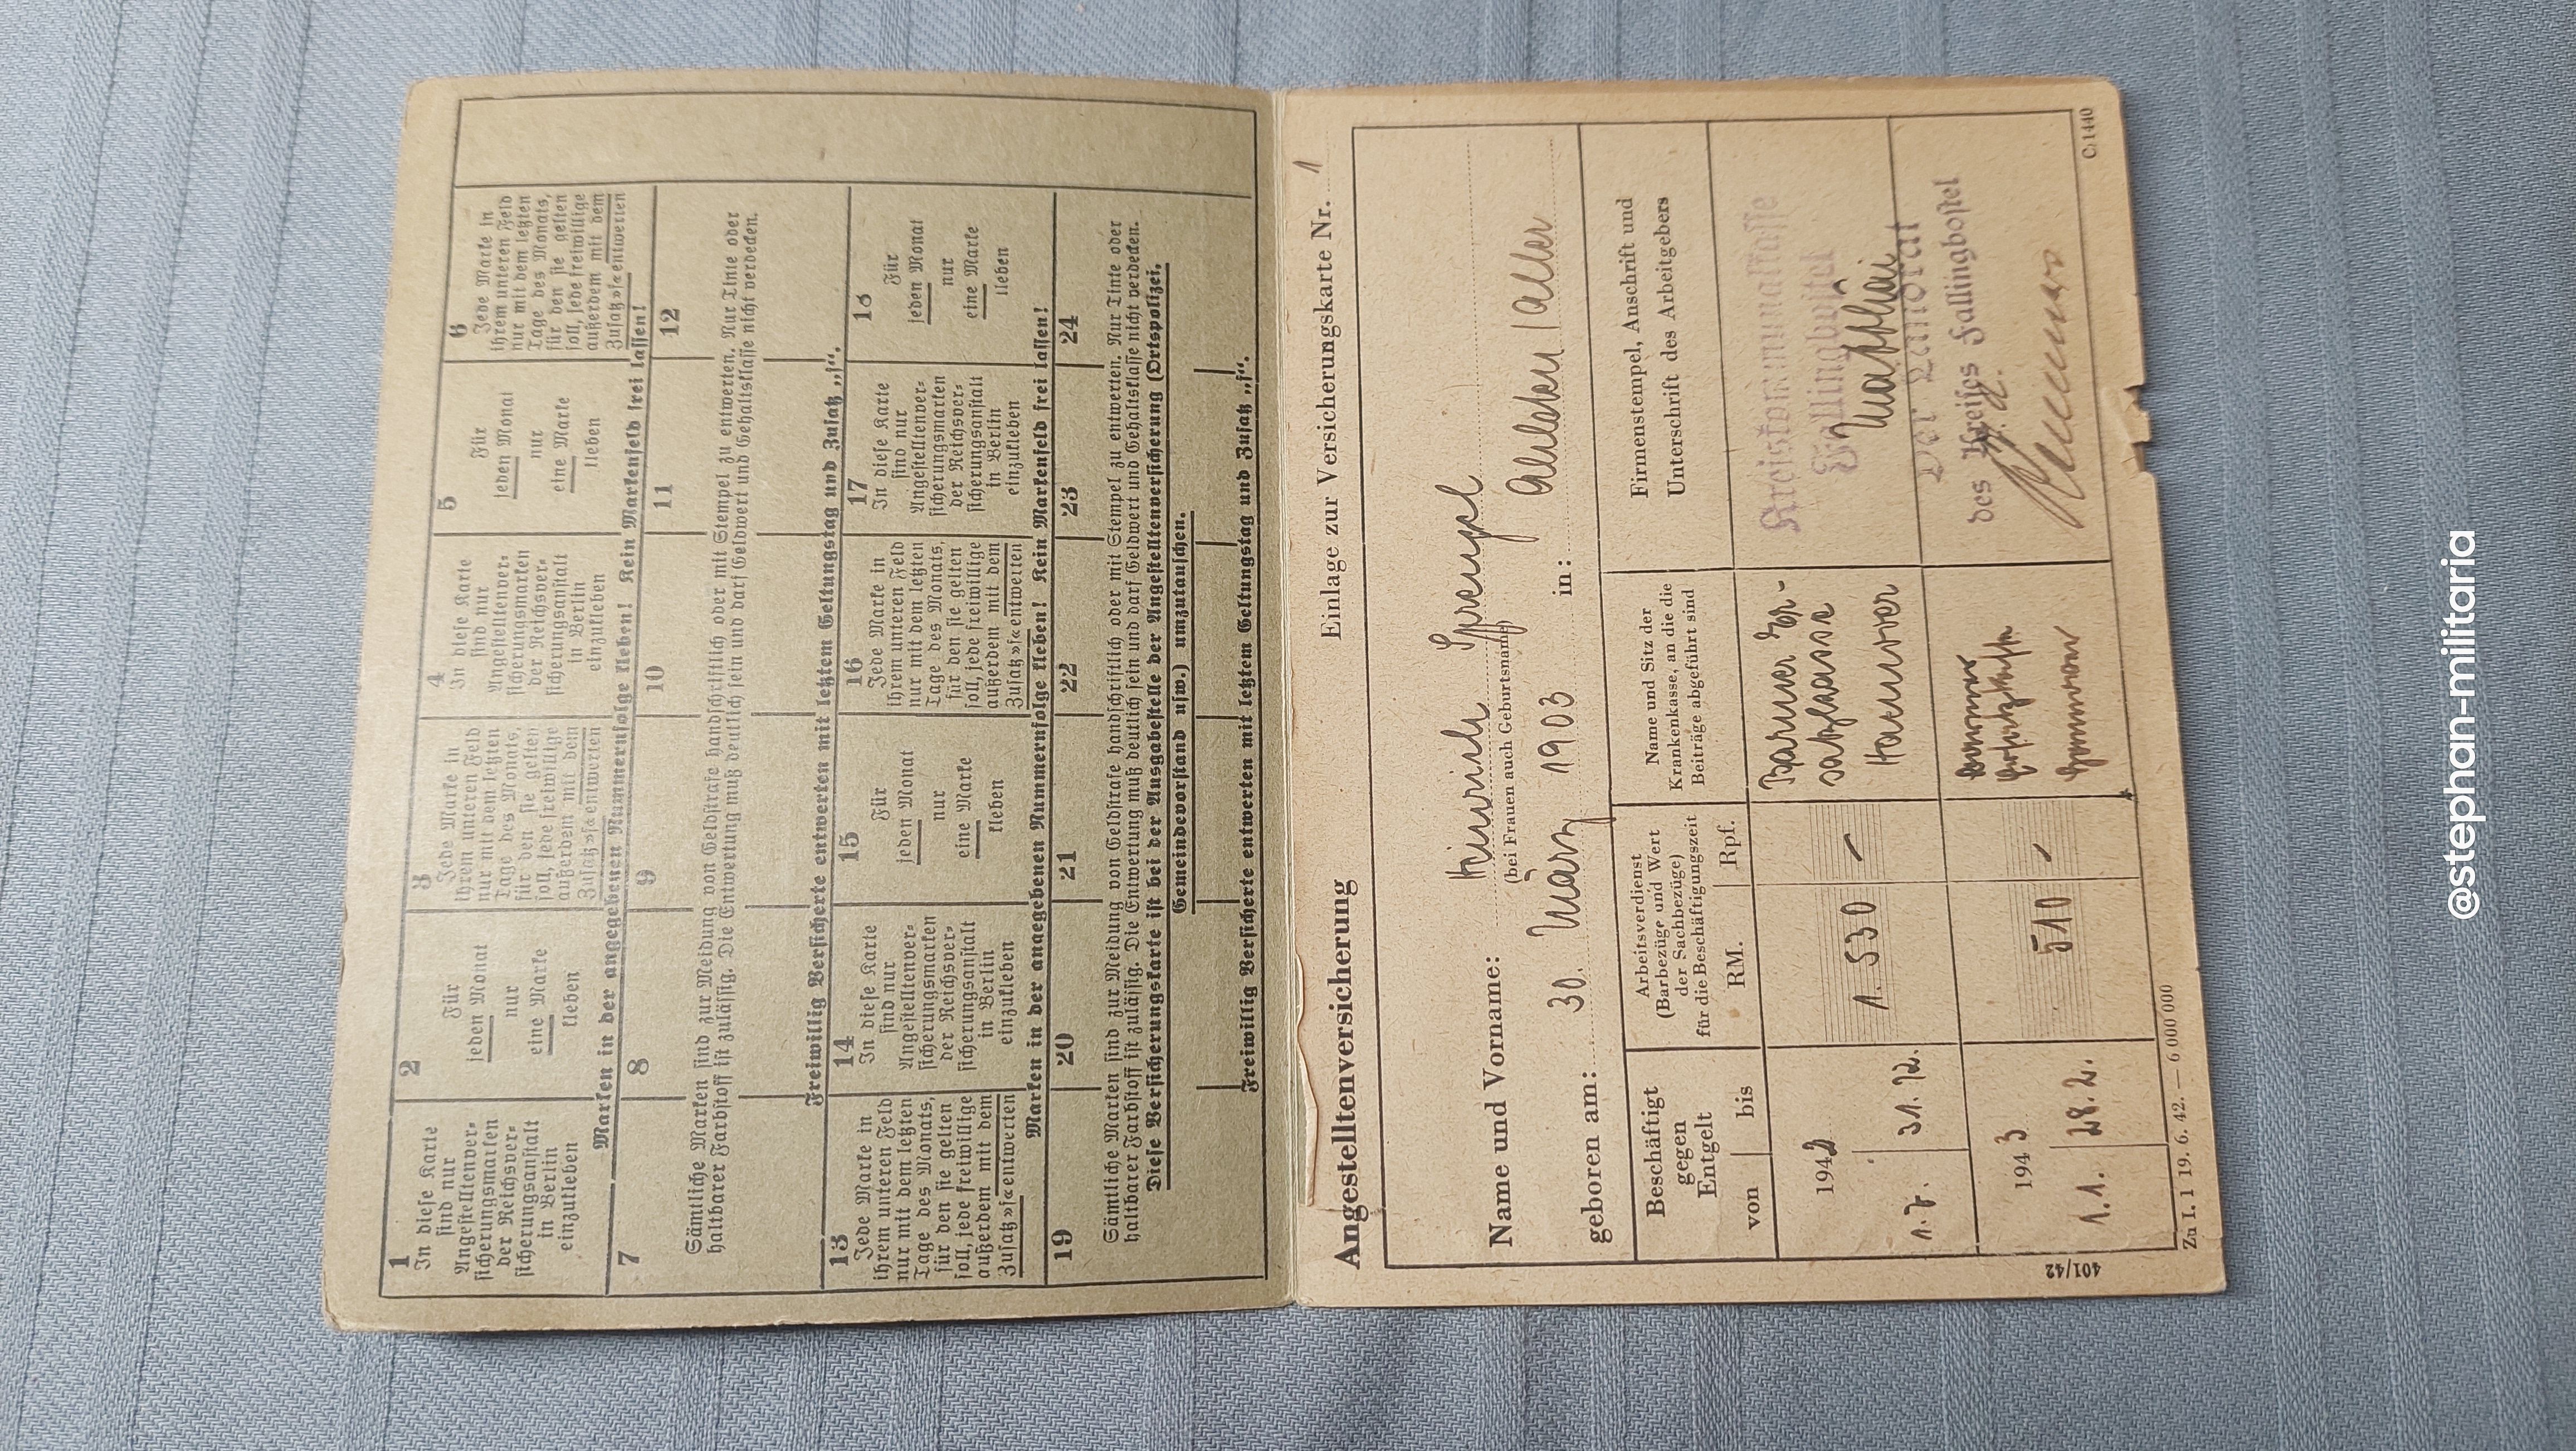 1
In diese Karte
sind nur
Angestelltenver-
sicherungsmarken
der Reichsver-
sicherungsanstalt
in Berlin
einzukleben
2
Für
jeden Monat
nur
eine Marke
kleben
3
Jede Marke in
ihrem unteren Feld
nur mit dem letzten
Tage des Monats,
für den sie gelten
soll, jede freiwillige
außerdem mit dem
Zusatz »f« entwerten
4
In diese Karte
sind nur
Angestelltenver-
sicherungsmarken
der Reichsver-
sicherungsanstalt
in Berlin
einzukleben
5
Für
jeden Monat
nur
eine Marke
kleben
6
Jede Marke in
ihrem unteren Feld
nur mit dem letzten
Tage des Monats,
für den sie gelten
soll, jede freiwillige
außerdem mit dem
Zusatz »f« entwerten
Marken in der angegebenen Nummernfolge kleben! Kein Markenfeld frei lassen!
7 8 9 10 11 12
Sämtliche Marken sind zur Meidung von Geldstrafe handschriftlich oder mit Stempel zu entwerten. Nur Tinte oder
haltbarer Farbstoff ist zulässig. Die Entwertung muß deutlich sein und darf Geldwert und Gehaltsklasse nicht verdecken.
Freiwillig Versicherte entwerten mit letztem Geltungstag und Zusatz „f“.
13
Jede Marke in
ihrem unteren Feld
nur mit dem letzten
Tage des Monats,
für den sie gelten
soll, jede freiwillige
außerdem mit dem
Zusatz »f« entwerten
14
In diese Karte
sind nur
Angestelltenver-
sicherungsmarken
der Reichsver-
sicherungsanstalt
in Berlin
einzukleben
15
Für
jeden Monat
nur
eine Marke
kleben
16
Jede Marke in
ihrem unteren Feld
nur mit dem letzten
Tage des Monats,
für den sie gelten
soll, jede freiwillige
außerdem mit dem
Zusatz »f« entwerten
17
In diese Karte
sind nur
Angestelltenver-
sicherungsmarken
der Reichsver-
sicherungsanstalt
in Berlin
einzukleben
18
Für
jeden Monat
nur
eine Marke
kleben
Marken in der angegebenen Nummernfolge kleben! Kein Markenfeld frei lassen!
19 20 21 22 23 24
Sämtliche Marken sind zur Meidung von Geldstrafe handschriftlich oder mit Stempel zu entwerten. Nur Tinte oder
haltbarer Farbstoff ist zulässig. Die Entwertung muß deutlich sein und darf Geldwert und Gehaltsklasse nicht verdecken.
Diese Versicherungskarte ist bei der Ausgabestelle der Angestelltenversicherung (Ortspolizei,
Gemeindevorstand usw.) umzutauschen.
Freiwillig Versicherte entwerten mit letztem Geltungstag und Zusatz „f“.
Angestelltenversicherung Einlage zur Versicherungskarte Nr. 1
Name und Vorname: Heinrich Sprengel
(bei Frauen auch Geburtsname)
geboren am: 30. März 1903 in: Ahlden / Aller
Beschäftigt
gegen
Entgelt
von bis
Arbeitsverdienst
(Barbezüge und Wert
der Sachbezüge)
für die Beschäftigungszeit
RM. Rpf.
Name und Sitz der
Krankenkasse, an die die
Beiträge abgeführt sind
Firmenstempel, Anschrift und
Unterschrift des Arbeitgebers
1942
1.7. 31.12.
1.530 –
Barmer Er-
satzkasse
Hannover
Kreiskommunalkasse
Fallingbostel
1943
1.1. 28.2.
510 –
Hannover
Der Landrat
des Kreises Fallingbostel
401/42
Zu I. 1 19. 6. 42. — 6 000 000
C/1440
@stephan-militaria